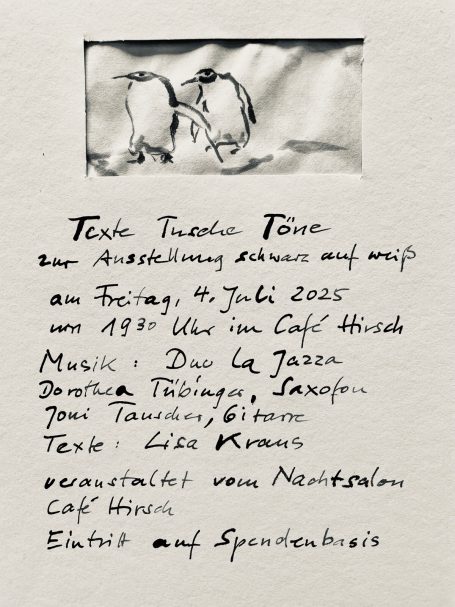 Texte Tusche Töne
zur Ausstellung schwarz auf weiß
am Freitag, 4. Juli 2025
um 19³⁰ Uhr im Café Hirsch
Musik: Duo La Jazza
Dorothea Tübinger, Saxofon
Joni Tauscher, Gitarre
Texte: Lisa Kraus
veranstaltet vom Nachtsalon
Café Hirsch
Eintritt auf Spendenbasis